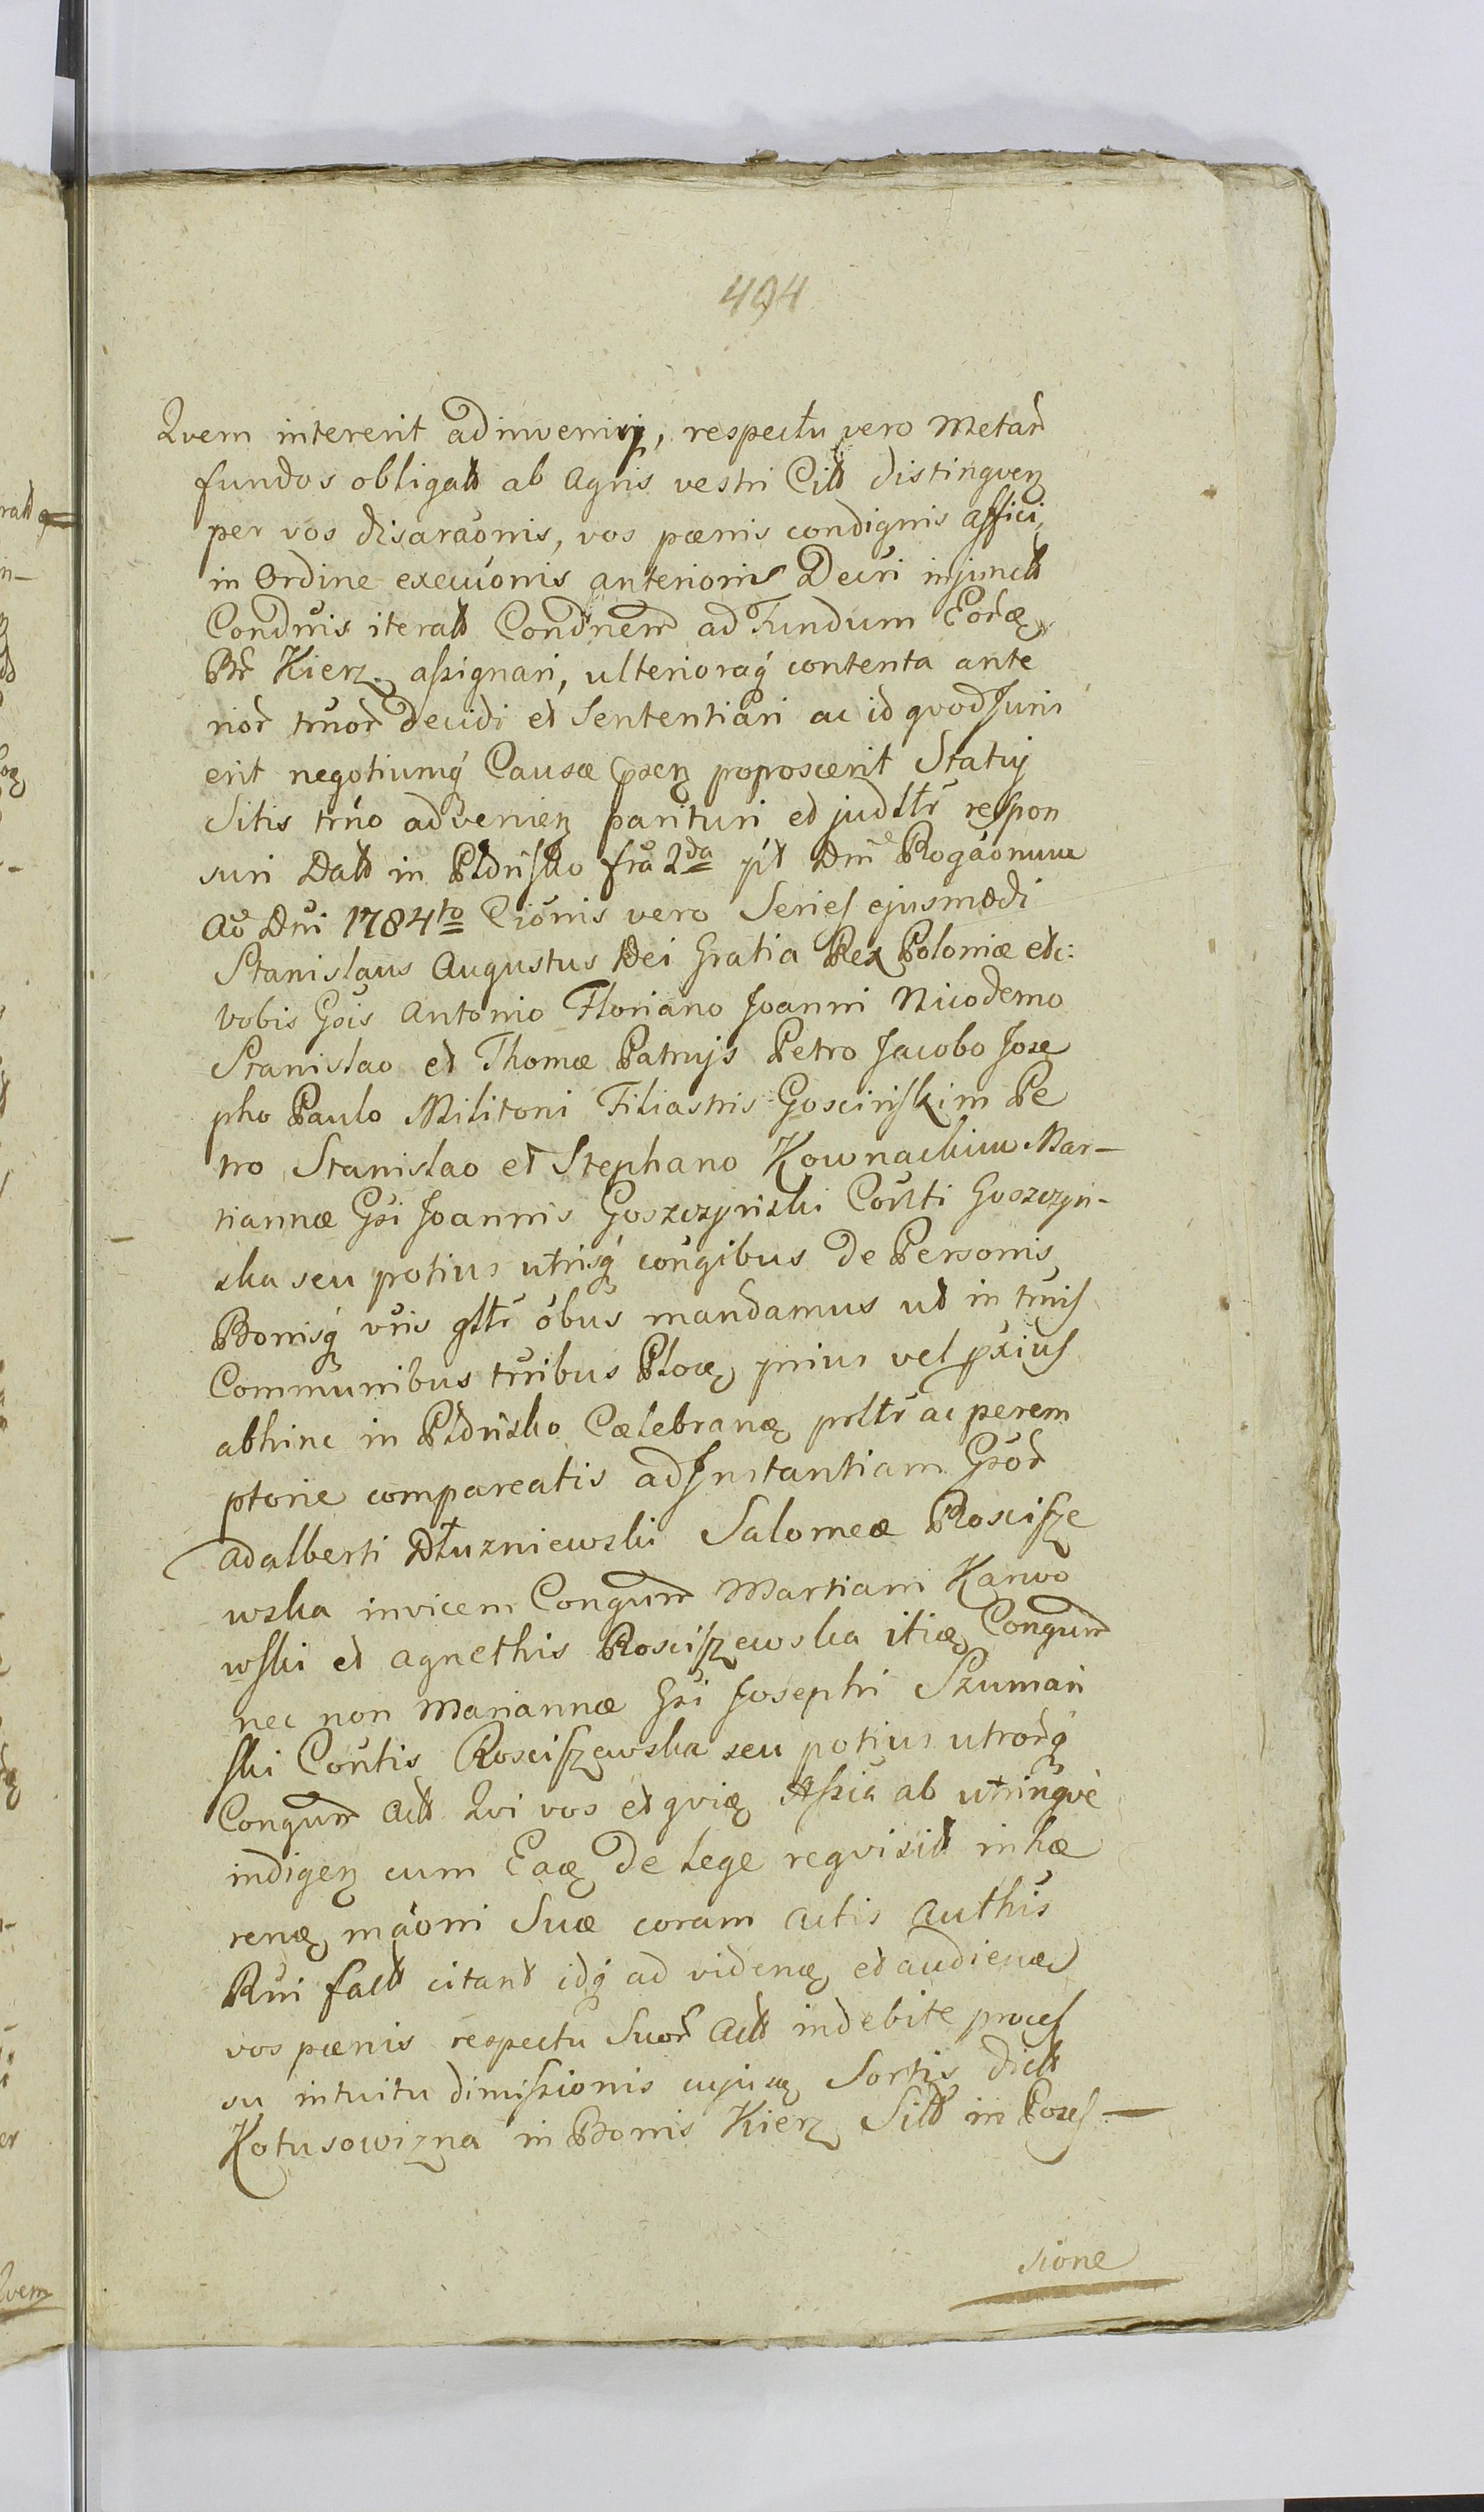 494
Qvem intererit adinvenirj, respectu vero Metar̃
fundos obligatt ab Agris vestri Citt distingven
per vos disaraõnis, vos pœnis condignis affici,
in Ordine execuõnis anterioris Decri injunctt
Condnis iteratt Condnem ad Fundum
Br Kierz assignari, ulterioraq́ contenta ante
rior̃ trnor̃ decidi et Sententiari ac id qvod Juris
erit negotiumq́ Causæ poproscerit Statuj
Sitis trńo advenien parituri et judłłr respon
suri Datt in fra 2da pſt Dm̃ Rogaõnum
Ao Dni 1784to Ciõnis vero Series ejusmodi
Stanislaus Augustus Dei Gratia Rex Poloniæ etc:
Vobis Gsis Antonio Floriano Joanni Nicodemo
Stanislao et Thomæ Patrujs Petro Jacobo Jose
pho Paulo Militoni Filiastris Goscinskim Pe
tro Stanislao et Stephano Kownackim Mar-
riannæ Gsi Joannis Goszczynski Coñti Goszczyn-
ska seu potius utrisq́ coñgibus de Personis
Bonisq́ vris głłr õbus mandamus ut in trnis
Communibus trribus Ploc prius vel pxius
abhinc in Cœlebran prłłr ac perem
ptorie compareatis ad Instantiam Gsor̃
Adalberti Dłuzniewski Salomeæ Roscisze
wska invicem Congum̃ Martiani Karwo
wski et Agnethis Rosciszewska itiæ Congum̃
nec non Mariannæ Gsi Josephi Szuman
ski Coñtis Rosciszewska seu potius utror̃q́
Congum̃ Actt Qvi vos et qviæ Assia ab utrinqve
indigen cum Eaæ de lege reqvisitt inhæ
renæ maõni Suæ coram Actis Authis
Rñi factt citant idq́ ad videnæ et audienæ
vos pœnis respectu Suor̃ Actt indebite proces
su intuitu dimissionis cujusæ Sortis dictt
Kotusowizna in Bonis Kierz Sitt in Poses-
sione